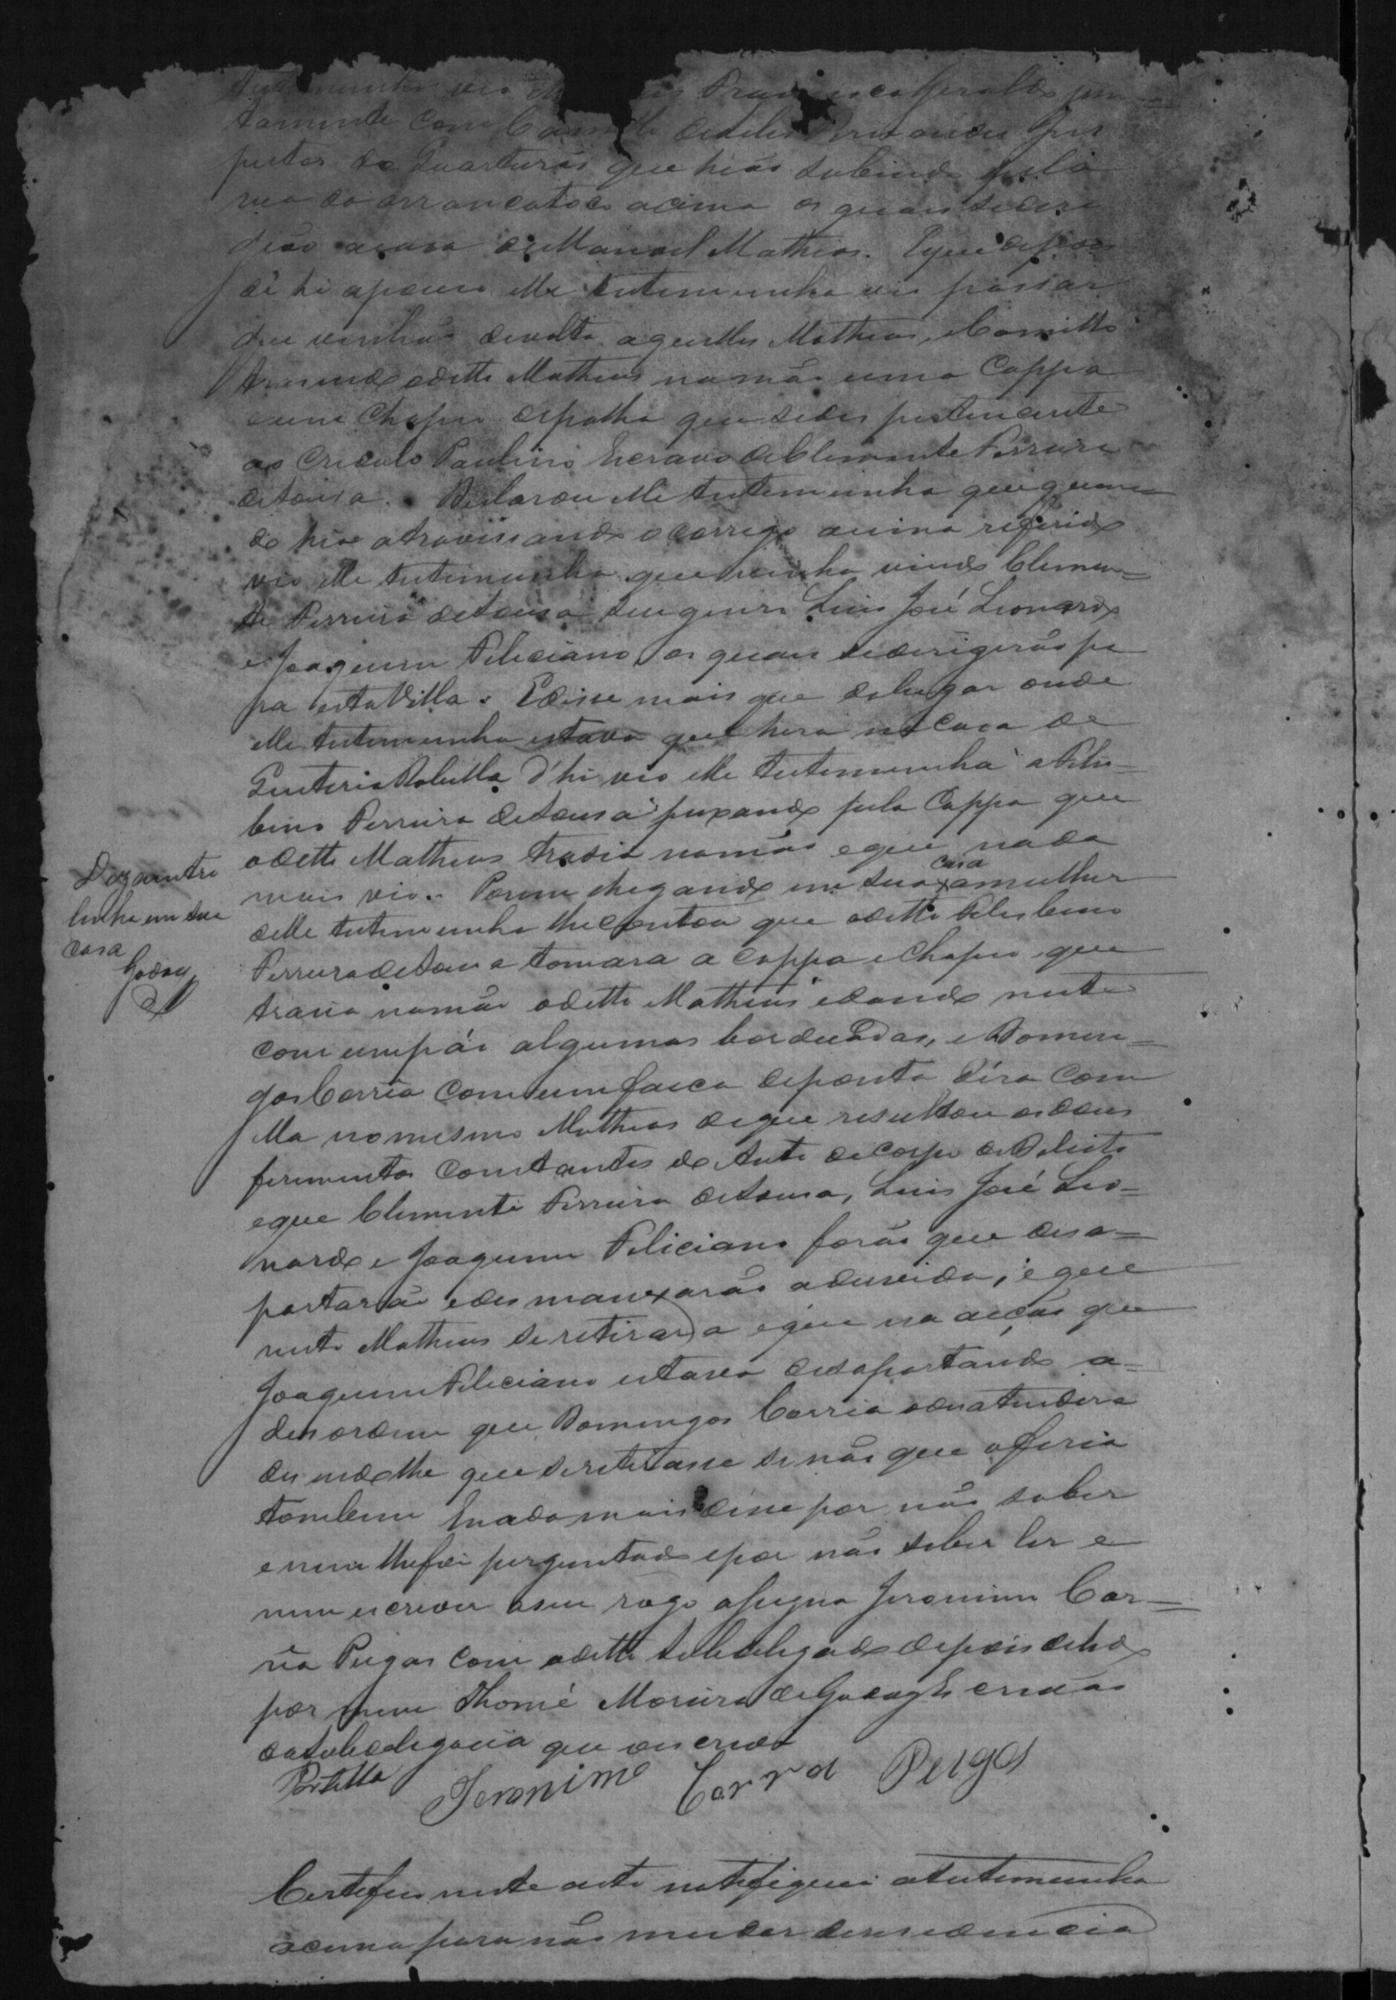 testemunha vio
tamente com
pector do Quarteirão que hião subindo pela
rua do arrancatoco acima os quais
a casa de Manoel Matheos. E que depois
d'hi a pouco elle testemunha vio passar
que vinhão de volta aquelles Matheus, e Camillo
trasendo o ditto Matheus na mão uma Cappa
e um Chapeo de palha que se diz pertencente
ao Crioulo Paulino Escravo de Clemente Perreira
de Sousa. Declarou elle testemunha que quan=
do hia atravessando o corrego acima referido
vio elle testemunha que vinha vindo Clemen=
te Perreira de Sousa seu genro Luis José Leonardo
e Joaquim Feliciano, os quais se derigirão pa
ra esta Villa. E disse mais que do lugar onde
elle testemunha estava que hera na casa de
Quiteria Rabella d'hi vio elle testemunha a Phile=
bino Perreira de Sousa puxando pela Cappa que
o ditto Matheus trasia na mão e que nada
mais vio. Porem chegando em sua casa a mulher
delle testemunha lhe contou que o ditto Philisbino
Perreira de Sousa tomara a cappa e chapeo que
trasia na mão o ditto Matheus e dando neste
com um páo algumas borduadas, e Domin=
gos Correa com um faca de ponta déra com
ella no mesmo Matheos de que resultou os dous
ferimentos constantes do Auto de Corpo de Delicto
e que Clemente Perreira de Sousa, Luis José Leo=
nardo e Joaquim Feliciano forão que desa=
partarão e desmanxarão a duvida, e que
neste Matheus se retirara e que na occão que
Joaquim Feliciano estava desapartando a=
desordem que Domingos Correa
disendo lhe que se retirasse se não que o feria
tambem E nada mais disse por não saber
e nem lhe foi perguntado e por não saber ler e
nem escrever a seu rogo assigna Jeronimo Cor=
rêa Peigas com o ditto Subdelegado depois de lido
por mim Thomé Moreira de Godoy Escrivão
da Subdelegacia que o escrevi
Portella Jeronimo Corra Peigas
Digo entre
linha em sua
casa
Godoy
Certifico neste acto notefiquei a testemunha
acima para não mudar de residencia